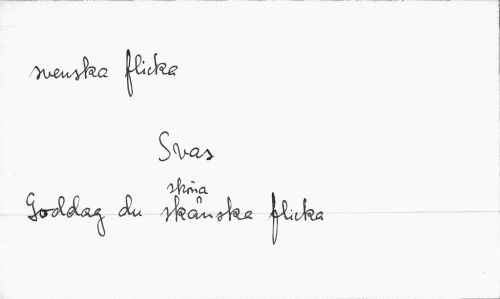 svenska flicka
Svas
sköna
Goddag du skånska flicka